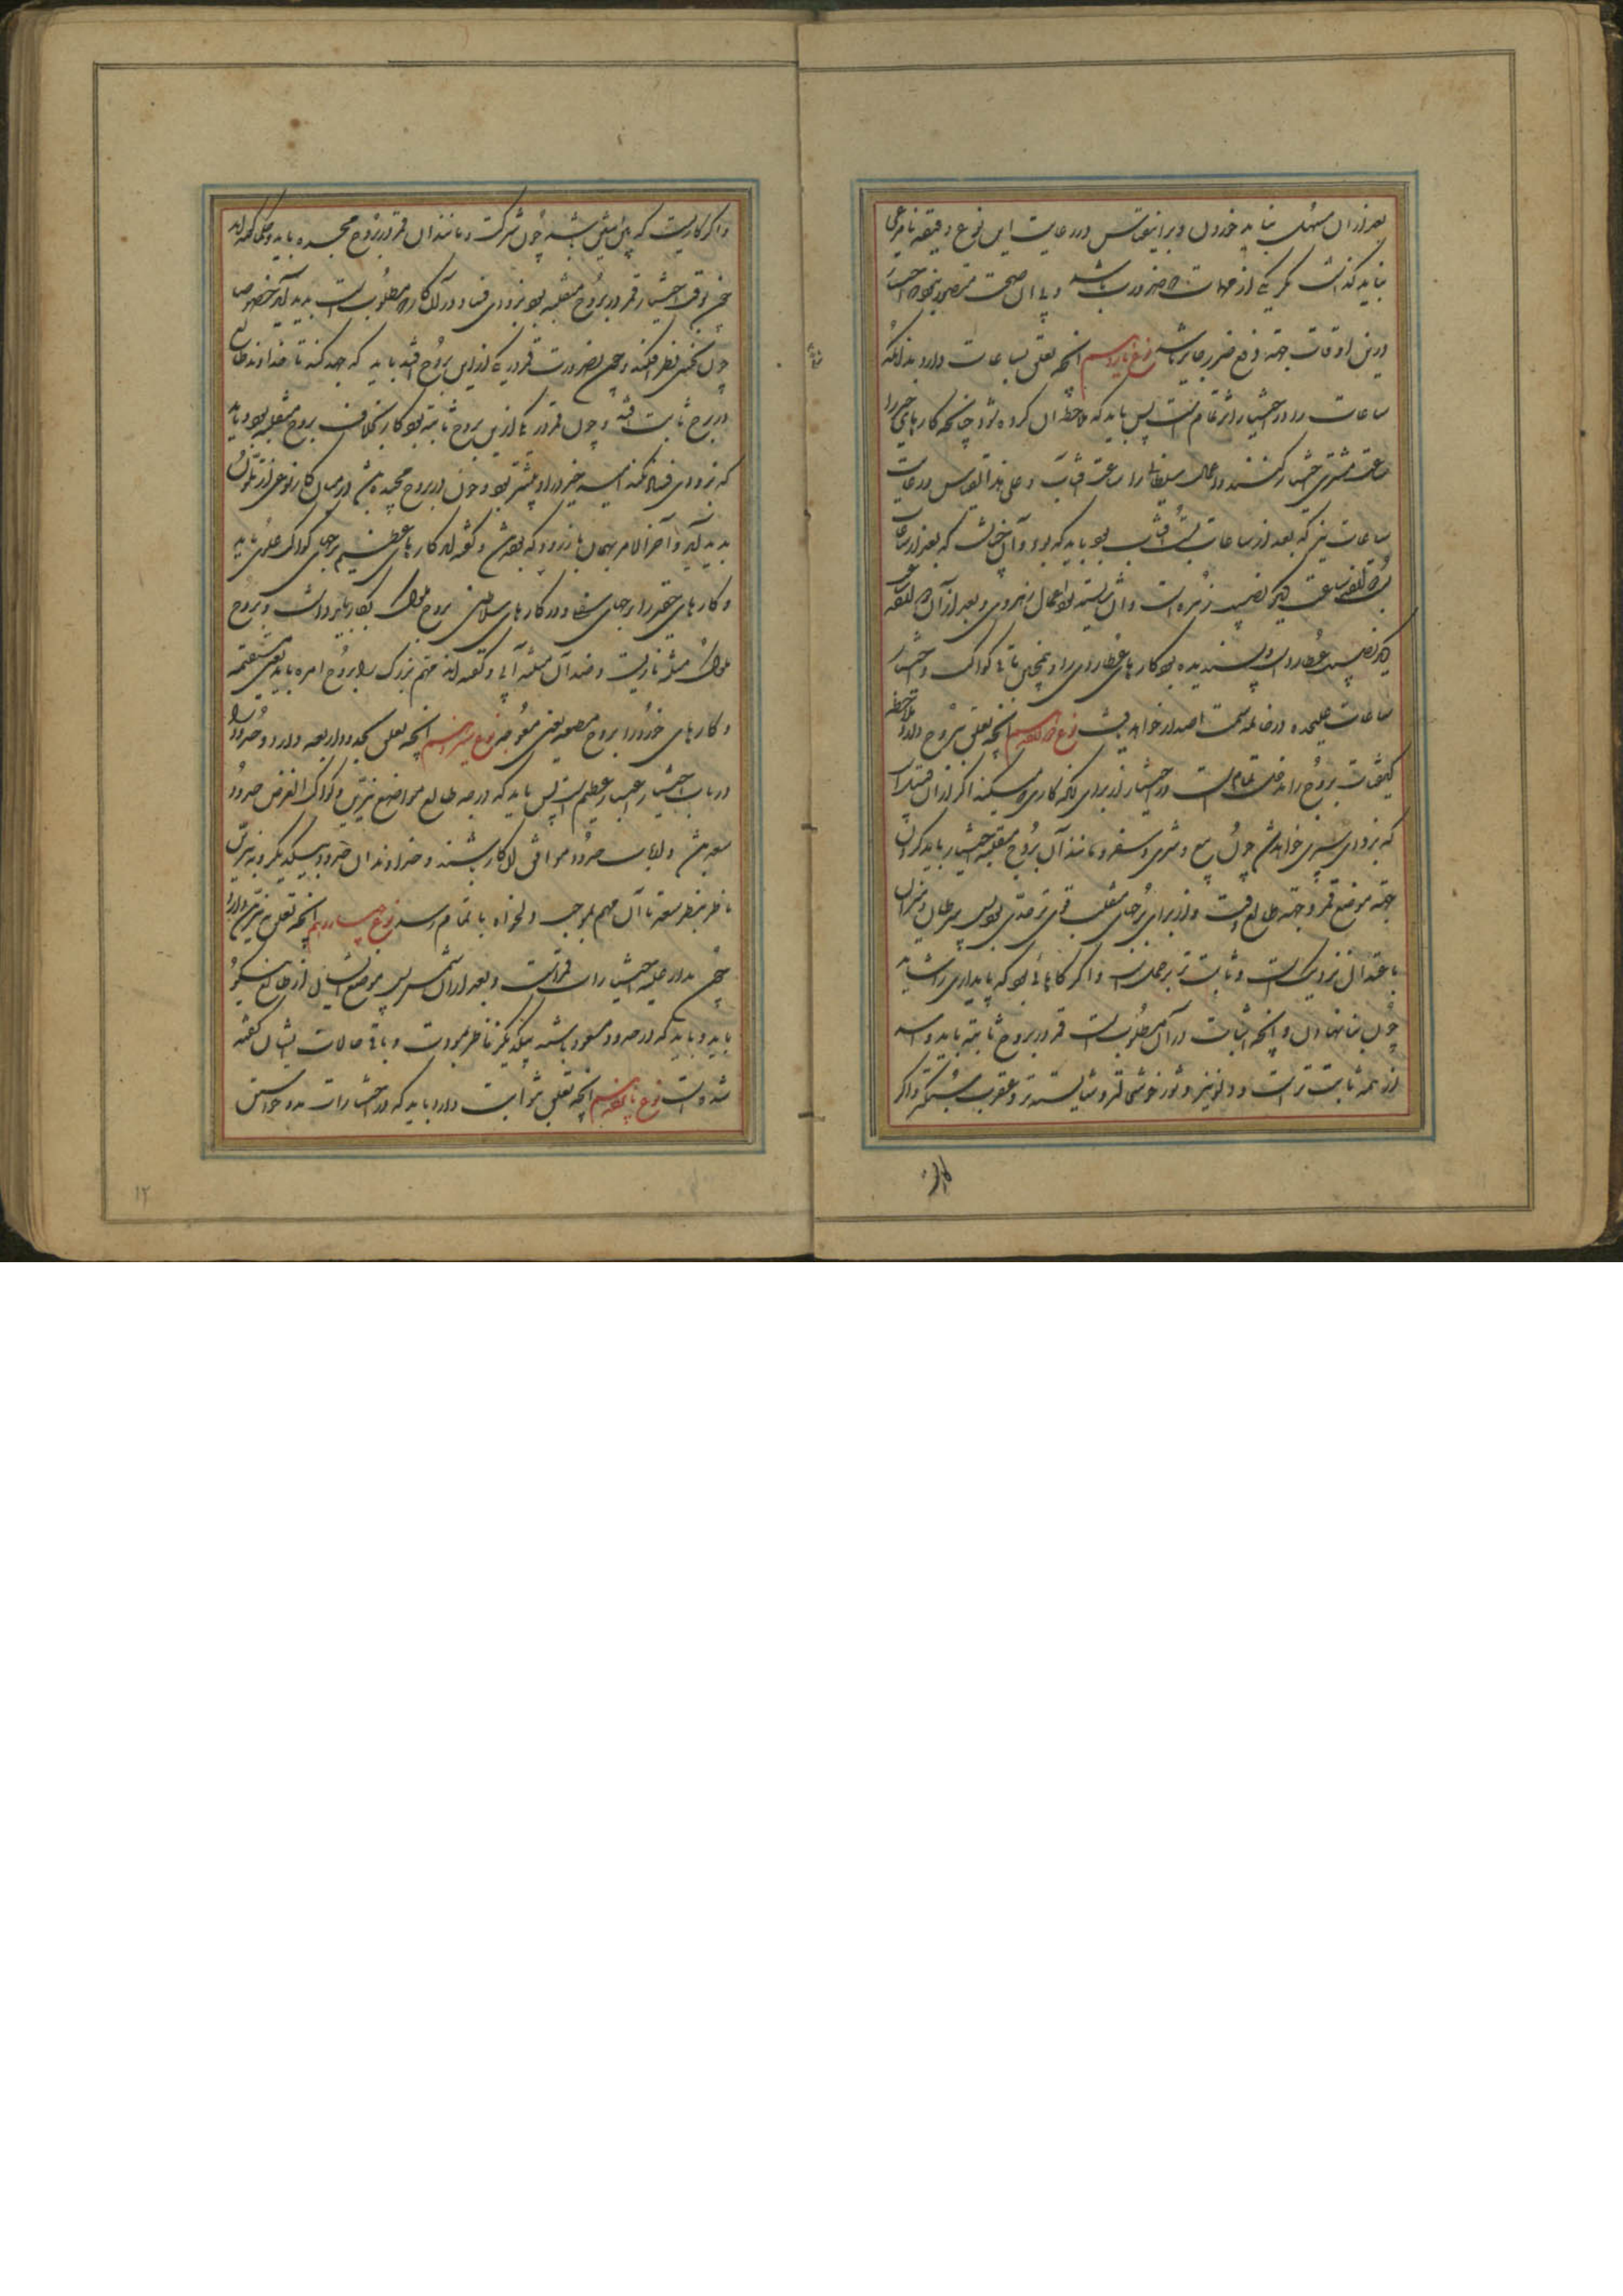 بعد از آن مسهل نباید خوردن و برین قیاس و در رعایت این نوع دقیقه نامرعی
نباید گذاشت مگر یکی از مهمات که ضرورت باشد و بی آن صحت متصور نبود که اختیار
درین اوقات جهة دفع ضرر جایز باشد نوع یازدهم آنچه تعلق بساعات دارد بدانکه
ساعات را در اختیار اثر تمام است پس باید که ملاحظه آن کرده شود چنانکه کارهای خیر را
ساعت مشتری اختیار کنند و اعمال سلطانی را ساعت آفتاب و علی هذا القیاس و رعایت
ساعات نیز که بعد از ساعات آفتاب بود باید که بود و آن چنانست که بعد از ساعات
ساعت دیگر نصیب زهره است و آن شایسته بود اعمال زهروی و بعد از آن
دیگر نصیب عطارد است و پسندیده بود کارهای عطاردی را و همچنین تا باقی کواکب و اختیار
ساعات علیحده در خاتمه سمت اصدار خواهد یافت نوع دوازدهم آنچه تعلق ببروج دارد ملاحظه
کیفیات بروج را مدخلی تمام است در اختیار از برای آنکه کاری که میکنند اگر از آن قبیل است
که بزودی سپری خواهد شد چون بیع و شری و سفر و مانند آن بروج منقلبه اختیار باید کرد
جهة موضع قمر و جهة طالع وقت و از برای برجهای منقلب قوی تر جدی بود پس سرطان و میزان
باعتدال نزدیک است و ثابت تر بر حمل است و اگر کاری بود که پایداری را شاید
چون بنا نهادن و آنچه ثبات در آن مطلوبست قمر در بروج ثابته باید و اسد
از همه ثابت تر است و دلو نیز و ثور خوشی تر و شایسته تر و عقرب سبکتر و اگر
واگر
و اگر کاریست که میان این باشد چون شرکت و مانند آن قمر در بروج مجسده باید و حکما گفته اند
چون وقت اختیار قمر در بروج منقلبه بود بزودی فساد در آن کار که مطلوبست پدید آید خصوصا
چون نحسی نظر افکند و چون بضرورت قمر در یکی ازین بروج افتد باید که جهد کند تا خداوند طالع
در برج ثابت افتد و چون قمر در یکی ازین بروج ثابته بود کار بخلاف بروج منقلبه بود باید
که بزودی فساد نکند امید خیر در او بیشتر بود و چون در بروج مجسده باشد در میان کار نوعی از تلون
پدید آید و آخر الامر بهمان باز رود که بوده باشد و گفته اند کارهای عظیم را برجهای کواکب علوی باید
و کارهای حقیر را برجهای سفلی و در کارهای سلاطین بروج ملوک بکار باید داشت و بروج
ملوک مثلثه ناریست و ضد آن مثلثه آبی و گفته اند مهم بزرگ را بروج آمره باید یعنی مستقیمه
و کارهای خرد را بروج مطیعه یعنی معوجه نوع سیزدهم آنچه تعلق بحدود اربعه دارد و حدود را
در باب اختیار اعتبار عظیم است پس باید که درجه طالع و مواضع نیرین و کواکب الغرض حدود
سعد باشد و ارباب حدود موافق آن کار باشند و خداوندان حدود بیکدیگر و به نیرین
ناظر بنظر سعد تا آن مهم بموجب دلخواه باتمام رسد نوع چهاردهم آنچه تعلق بنیرین دارد
چون مدار علیه اختیارات قمر است و بعد از آن شمس پس موضع ایشان از طالع نیکو
باید و باید که در حدود سعود باشند بیکدیگر ناظر بمودت و باقی حالات ایشان گفته
شده است نوع پانزدهم آنچه تعلق بثوابت دارد باید که در اختیارات مدد خواستن
۱۲